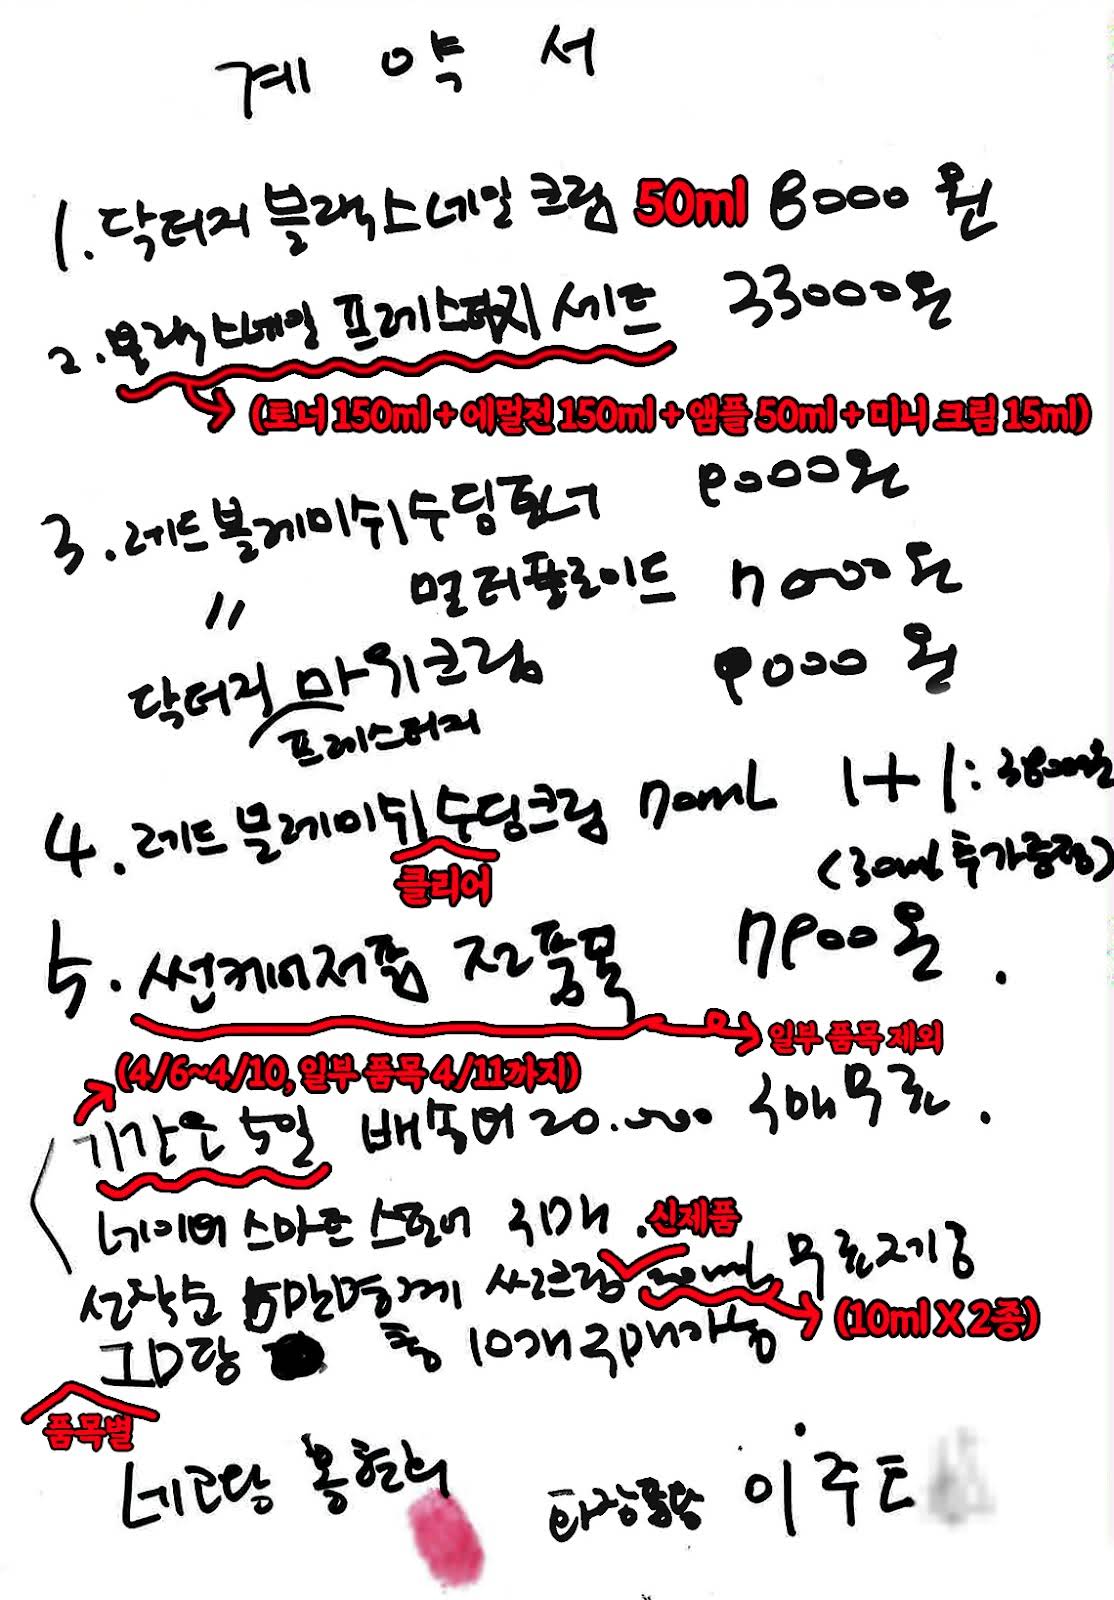 계 약 서
1. 닥터지 블랙스네일 크림 50ml 8000원
2. 블랙스네일 프레스티지 세트 33000원
(토너 150ml + 에멀전 150ml + 앰플 50ml + 미니 크림 15ml)
3. 레드블레미쉬 수딩토너 9000원
〃 멀티플루이드 7000원
닥터지 마유크림 9000원
프레스티지
4. 레드 블레미쉬 수딩크림 70mL 1+1: 38000원
클리어 (30ml 추가증정)
5. 썬케어제품 전품목 7900원.
일부 품목 제외
(4/6~4/10, 일부 품목 4/11까지)
기간은 5일 배송비 20.000 구매무료.
네이버 스마트 스토어 구매. 신제품
선착순 5만명께 썬크림 30mL 무료제공
(10ml X 2종)
ID당 총 10개 구매가능
품목별
네고왕 홍현희 화장품왕 이주